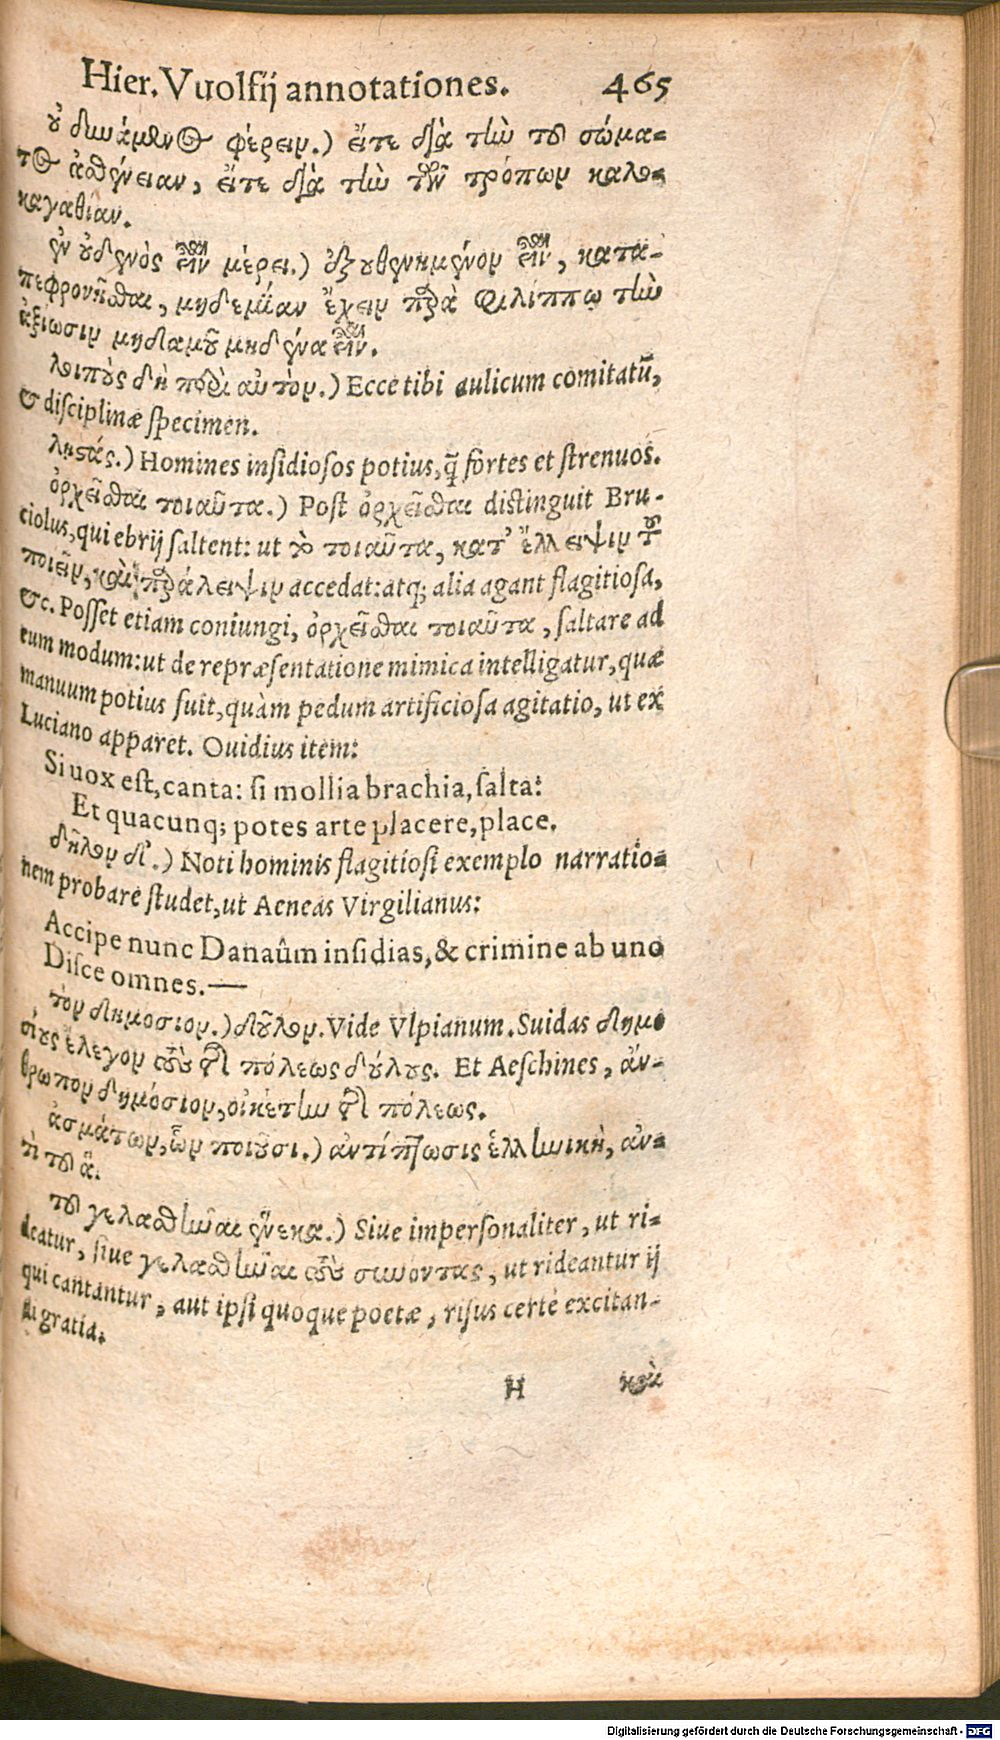 Hier. Vuolfij annotationes. 465
οὐ δυνάμενος φέρειν.) εἴτε διὰ τὴν τοῦ σώμα-
τος ἀσθένειαν, εἴτε διὰ τὴν τῶν τρόπων καλο-
καγαθίαν.
ἐν οὐδενὸς εἶναι μέρει.) ἐξουθενημένον εἶναι, κατα-
πεφρονῆσθαι, μηδεμίαν ἔχειν παρὰ Φιλίππῳ τὴν
ἀξίωσιν μηδαμοῦ μηδένα εἶναι.
λοιποὺς δὴ περὶ αὐτὸν.) Ecce tibi aulicum comitatū,
& disciplinæ specimen.
λῃστάς.) Homines insidiosos potius, q̄ fortes et strenuos.
ὀρχεῖσθαι τοιαῦτα.) Post ὀρχεῖσθαι distinguit Bru-
ciolus, qui ebrij saltent: ut τὸ τοιαῦτα, κατ' ἔλλειψιν τοῦ
ποιεῖν, καὶ παράλειψιν accedat: atq; alia agant flagitiosa,
&c. Posset etiam coniungi, ὀρχεῖσθαι τοιαῦτα, saltare ad
eum modum: ut de repræsentatione mimica intelligatur, quæ
manuum potius fuit, quàm pedum artificiosa agitatio, ut ex
Luciano apparet. Ouidius item:
Si uox est, canta: si mollia brachia, salta:
Et quacunq; potes arte placere, place.
δῆλον δ'.) Noti hominis flagitiosi exemplo narratio-
nem probare studet, ut Aeneas Virgilianus:
Accipe nunc Danaûm insidias, & crimine ab uno
Disce omnes.—
τὸν δημόσιον.) δοῦλον. Vide Vlpianum. Suidas δημο
σίους ἔλεγον τοὺς τῆς πόλεως δούλους. Et Aeschines, ἄν-
θρωπον δημόσιον, οἰκέτην τῆς πόλεως.
ἀσμάτων, ὧν ποιοῦσι.) ἀντίπτωσις ἑλληνικὴ, ἀν-
τὶ τοῦ ἃ.
τοῦ γελασθῆναι ἕνεκα.) Siue impersonaliter, ut ri-
deatur, siue γελασθῆναι τοὺς συνόντας, ut rideantur ij
qui cantantur, aut ipsi quoque poetæ, risus certè excitan-
di gratia.
H καὶ
Digitalisierung gefördert durch die Deutsche Forschungsgemeinschaft - DFG